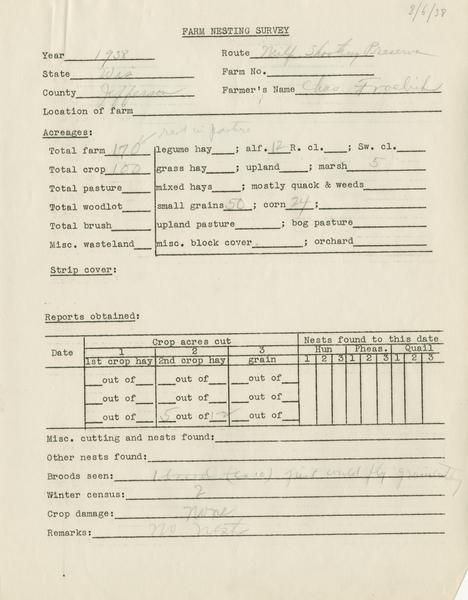 8/6/38
FARM NESTING SURVEY
Year 1938 Route Milf. Shooting Preserve
State Wis Farm No.
County Jefferson Farmer's Name Chas. Froelich
Location of farm
Acreages: rest in pasture
Total farm 170 legume hay ; alf. 12 R. cl. ; Sw. cl.
Total crop 100 grass hay ; upland ; marsh 5
Total pasture mixed hays ; mostly quack & weeds
Total woodlot small grains 50 ; corn 24 ;
Total brush upland pasture ; bog pasture
Misc. wasteland misc. block cover ; orchard
Strip cover:
Reports obtained:
Crop acres cut Nests found to this date
Date 1 2 3 Hun Pheas. Quail
1st crop hay 2nd crop hay grain 1 2 3 1 2 3 1 2 3
out of out of out of
out of out of out of
out of 5 out of 12 out of
Misc. cutting and nests found:
Other nests found:
Broods seen: 1 brood just could fly
Winter census: 2
Crop damage: None
Remarks: No nest